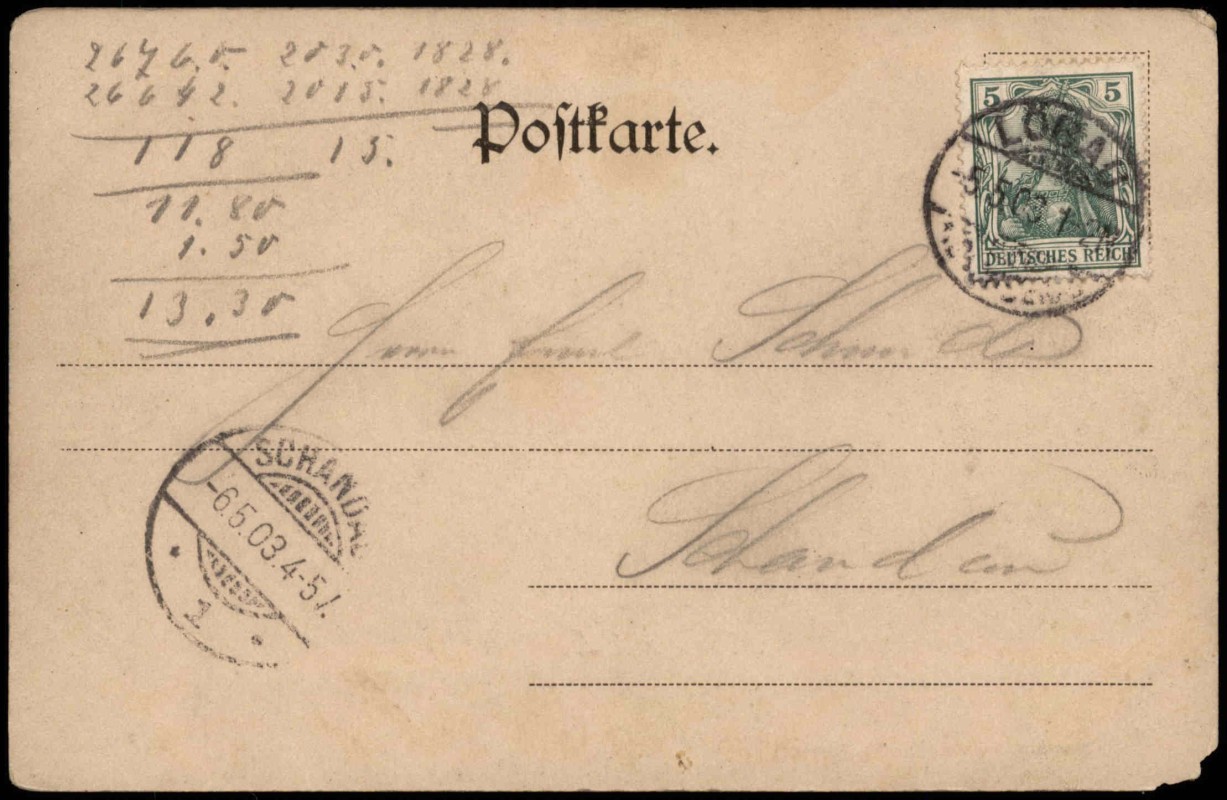 26760. 2030. 1828.
26642. 2015. 1828
118 15.
11.80
1.50
13.30
Postkarte.
5 5
LÖBAU
5.5.03
DEUTSCHES REICH
Herrn Emil Schmidt
Schandau
SCHANDAU
-6.5.03.4-5
1